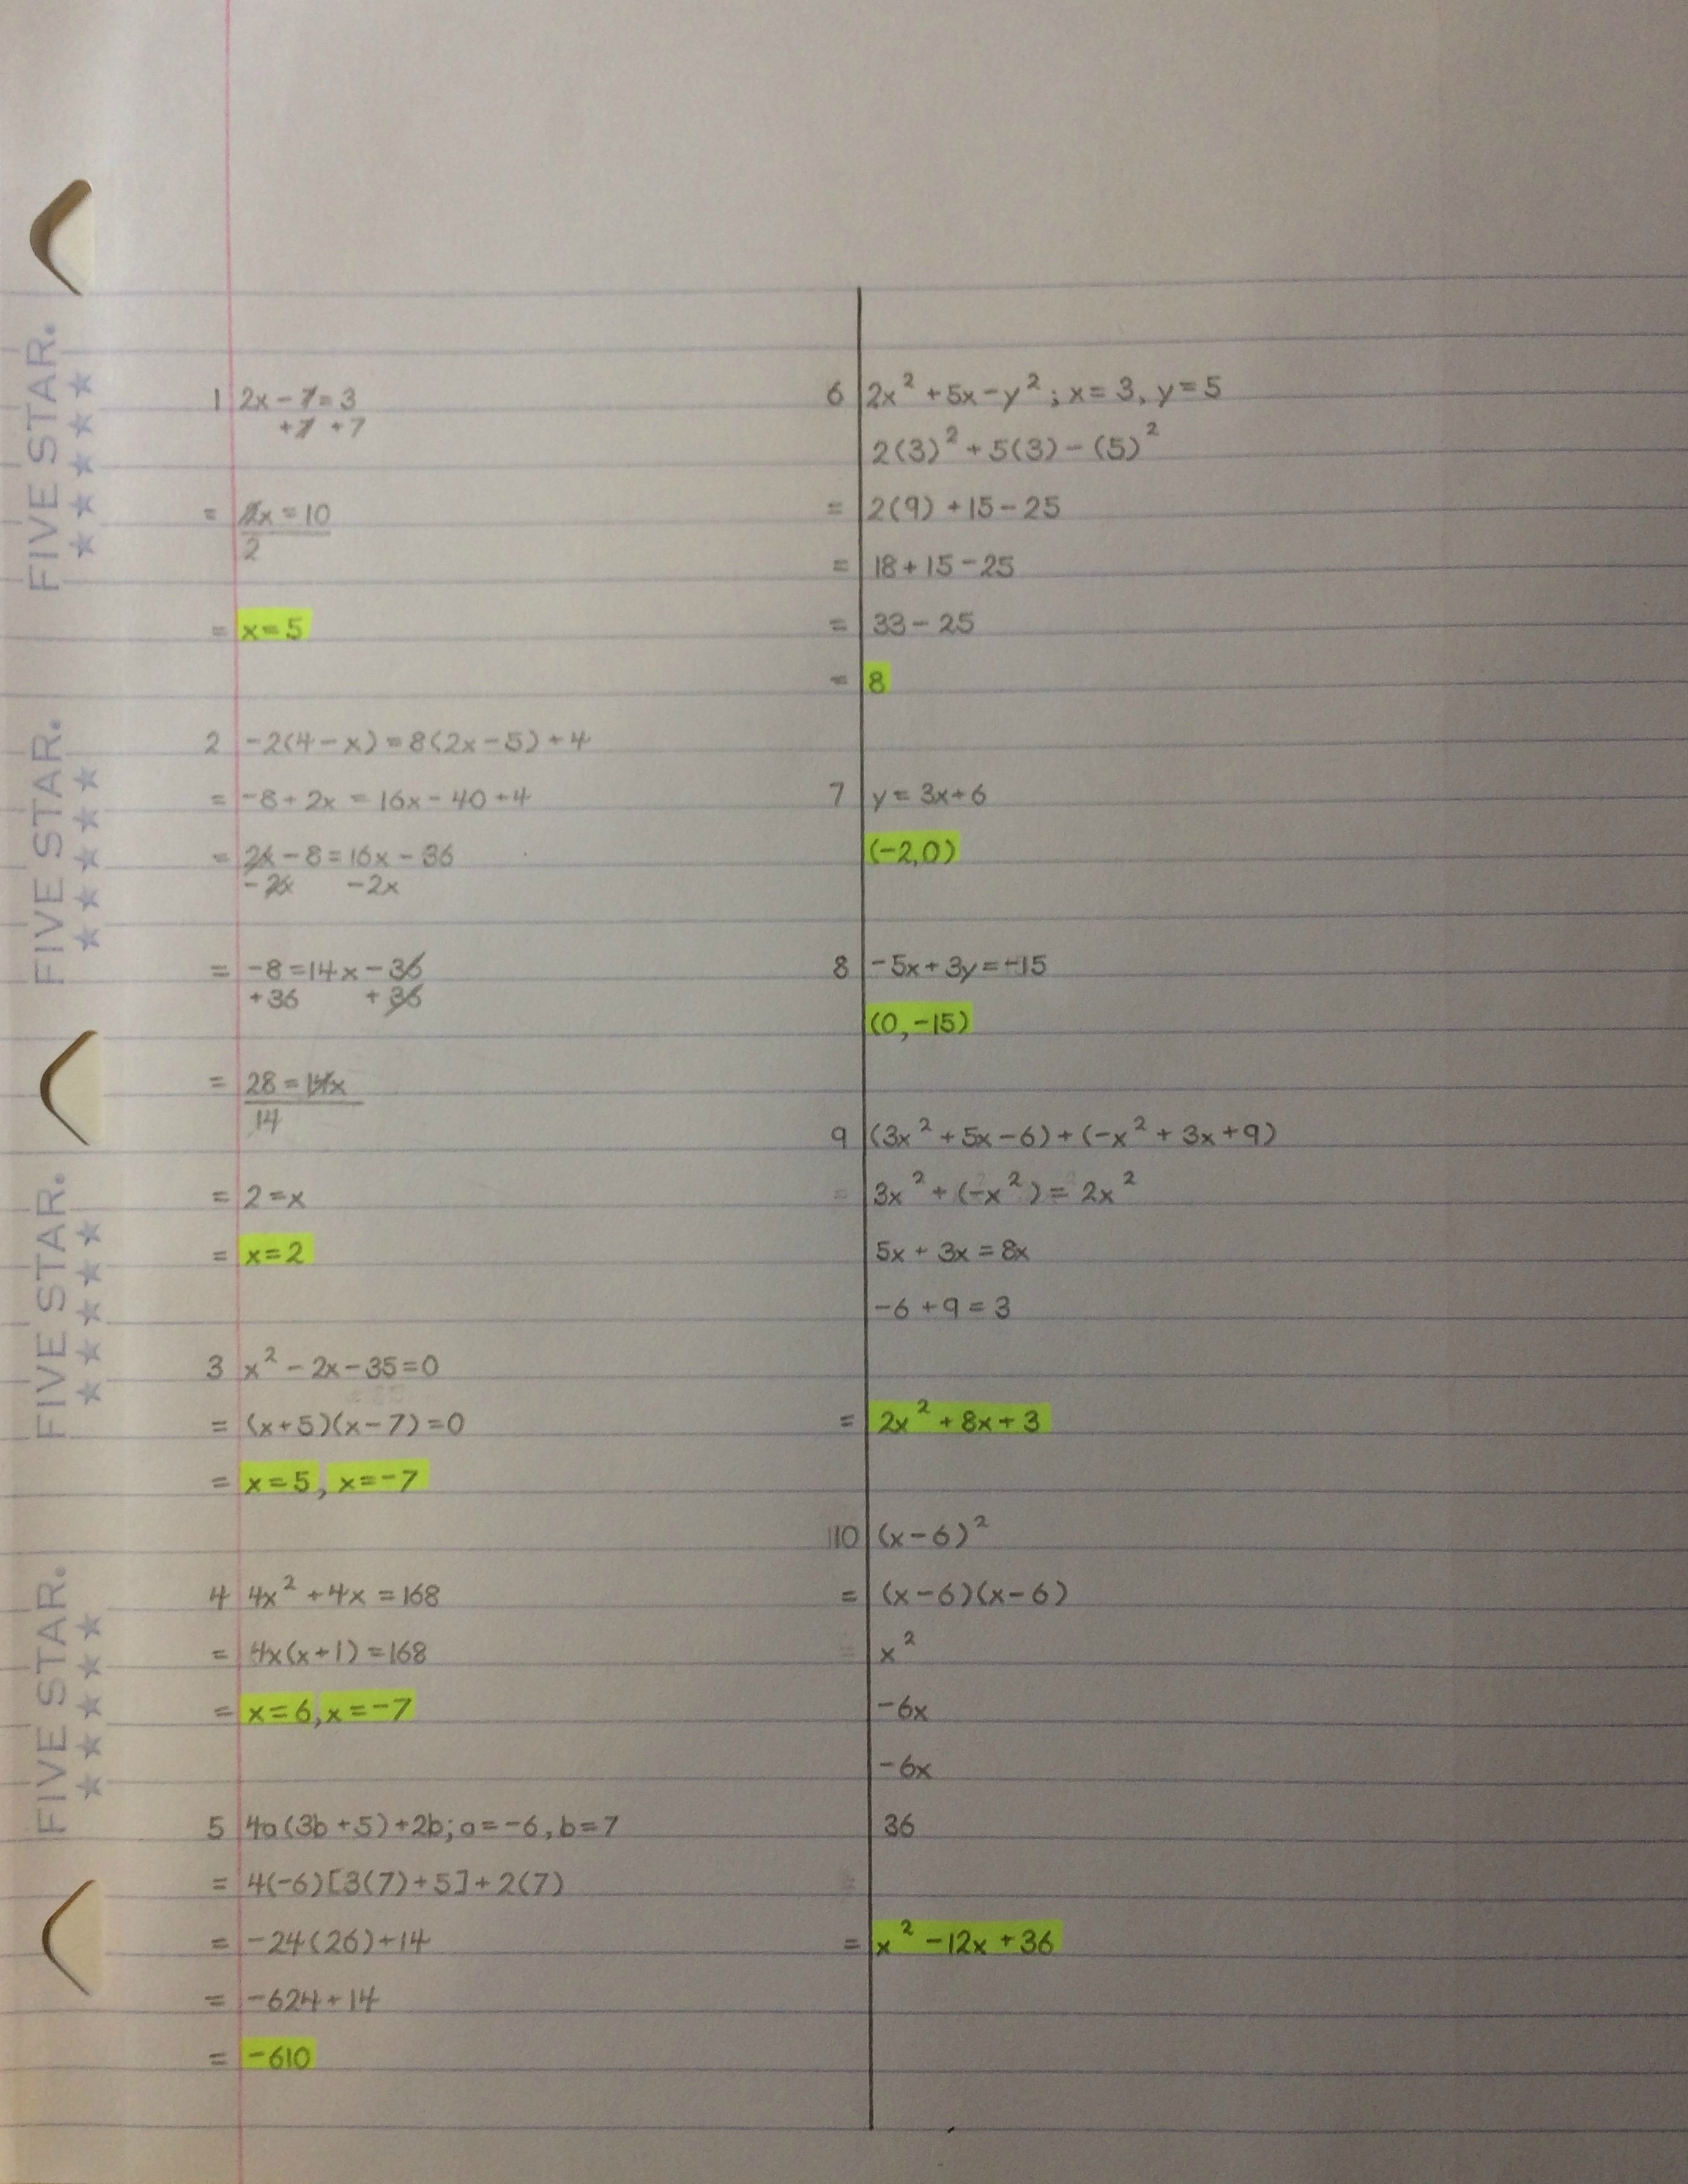 1 2x - 7 = 3
+7 +7
= 2x = 10
2
= x = 5
2 -2(4 - x) = 8(2x - 5) + 4
= -8 + 2x = 16x - 40 + 4
= 2x - 8 = 16x - 36
-2x -2x
= -8 = 14x - 36
+36 +36
= 28 = 14x
14
= 2 = x
= x = 2
3 x² - 2x - 35 = 0
= (x + 5)(x - 7) = 0
= x = 5, x = -7
4 4x² + 4x = 168
= 4x(x + 1) = 168
= x = 6, x = -7
5 4a(3b + 5) + 2b; a = -6, b = 7
= 4(-6)[3(7) + 5] + 2(7)
= -24(26) + 14
= -624 + 14
= -610
6 2x² + 5x - y²; x = 3, y = 5
2(3)² + 5(3) - (5)²
= 2(9) + 15 - 25
= 18 + 15 - 25
= 33 - 25
= 8
7 y = 3x + 6
(-2, 0)
8 -5x + 3y = -15
(0, -15)
9 (3x² + 5x - 6) + (-x² + 3x + 9)
= 3x² + (-x²) = 2x²
5x + 3x = 8x
-6 + 9 = 3
= 2x² + 8x + 3
10 (x - 6)²
= (x - 6)(x - 6)
= x²
-6x
-6x
36
= x² - 12x + 36
FIVE STAR.
FIVE STAR.
FIVE STAR.
FIVE STAR.